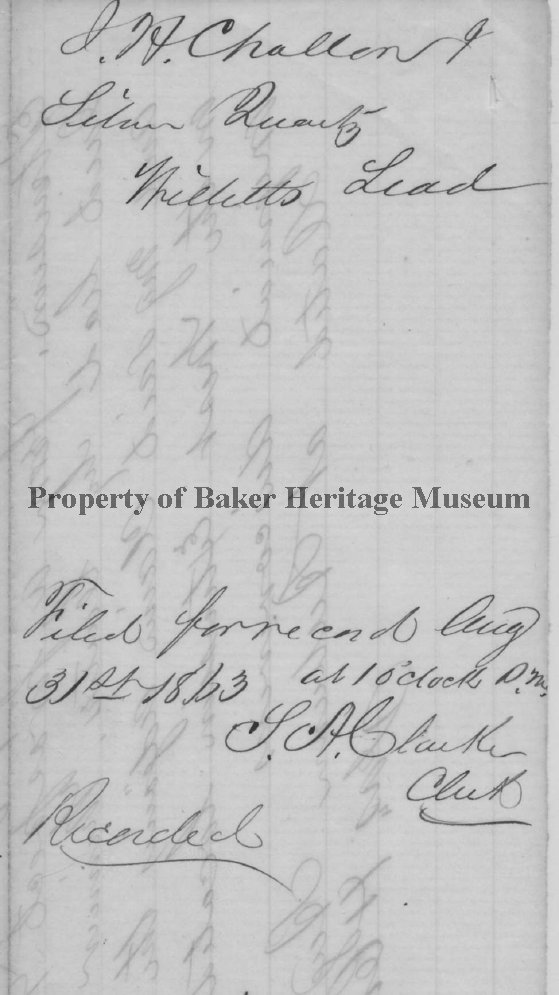 J. H. Challon &
Silver Quartz
Willetts Lead
Property of Baker Heritage Museum
Filed for record Aug
31st 1863 at 1 o'clock P.M.
S. A. Clarke
Clerk
Recorded